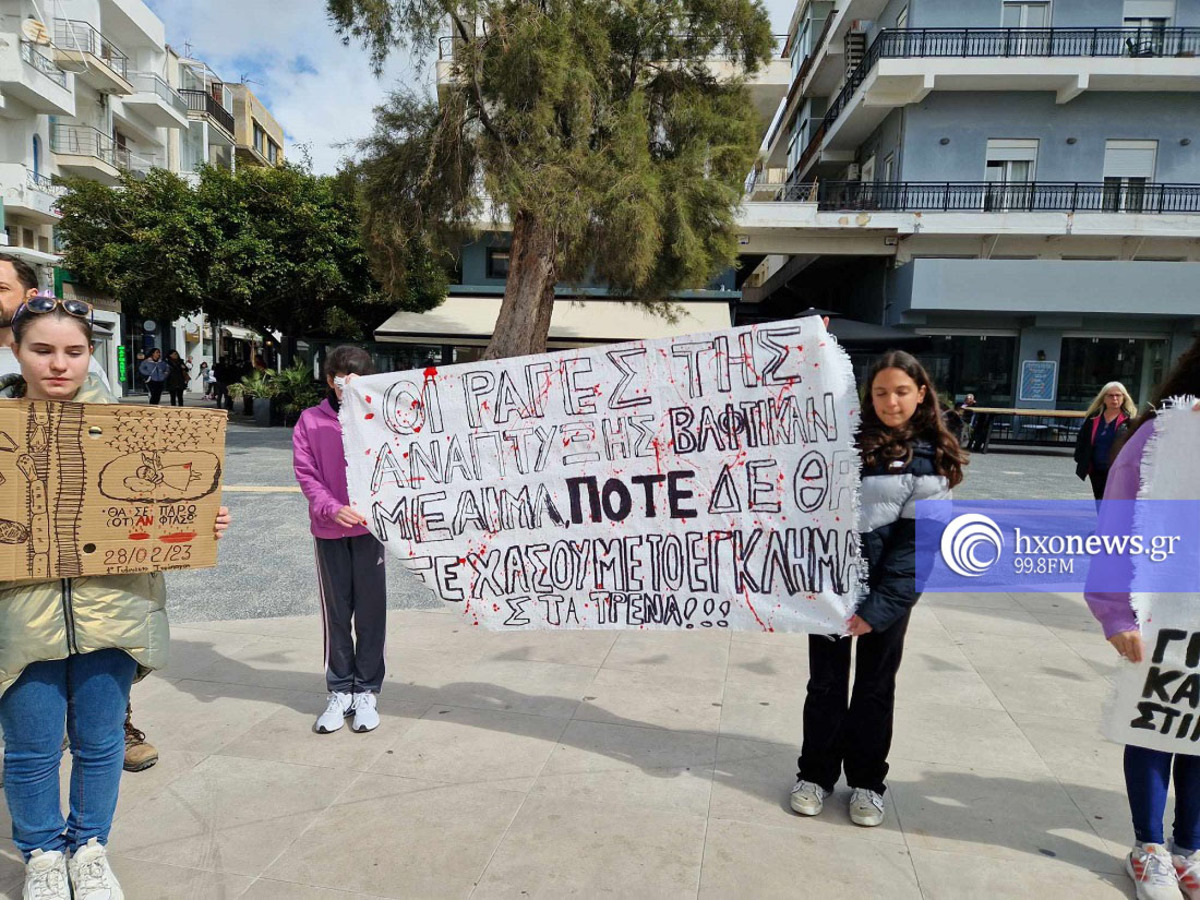 ΟΙ ΡΑΓΕΣ ΤΗΣ
ΑΝΑΠΤΥΞΗΣ ΒΑΦΤΙΚΑΝ
ΜΕ ΑΙΜΑ, ΠΟΤΕ ΔΕ ΘΑ
ΞΕΧΑΣΟΥΜΕ ΤΟ ΕΓΚΛΗΜΑ
ΣΤΑ ΤΡΕΝΑ!!!
ΘΑ ΣΕ ΠΑΡΩ
(ΟΤ)ΑΝ ΦΤΑΣΩ
28/02/23
hxonews.gr
99.8FM
ΚΑ
ΣΤΙ